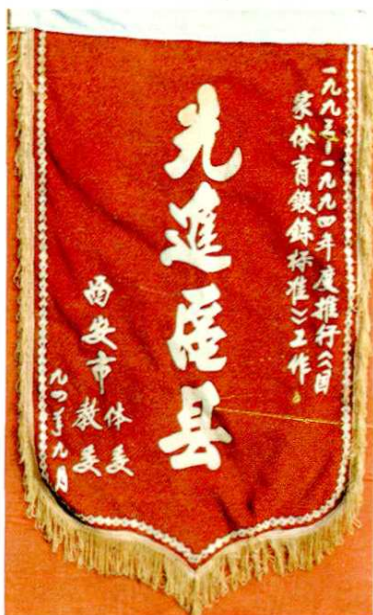 一九九三-一九九四年度推行《国
家体育鍛鍊标准》工作。
先進區县
西安市
体委
教委
九四年九月